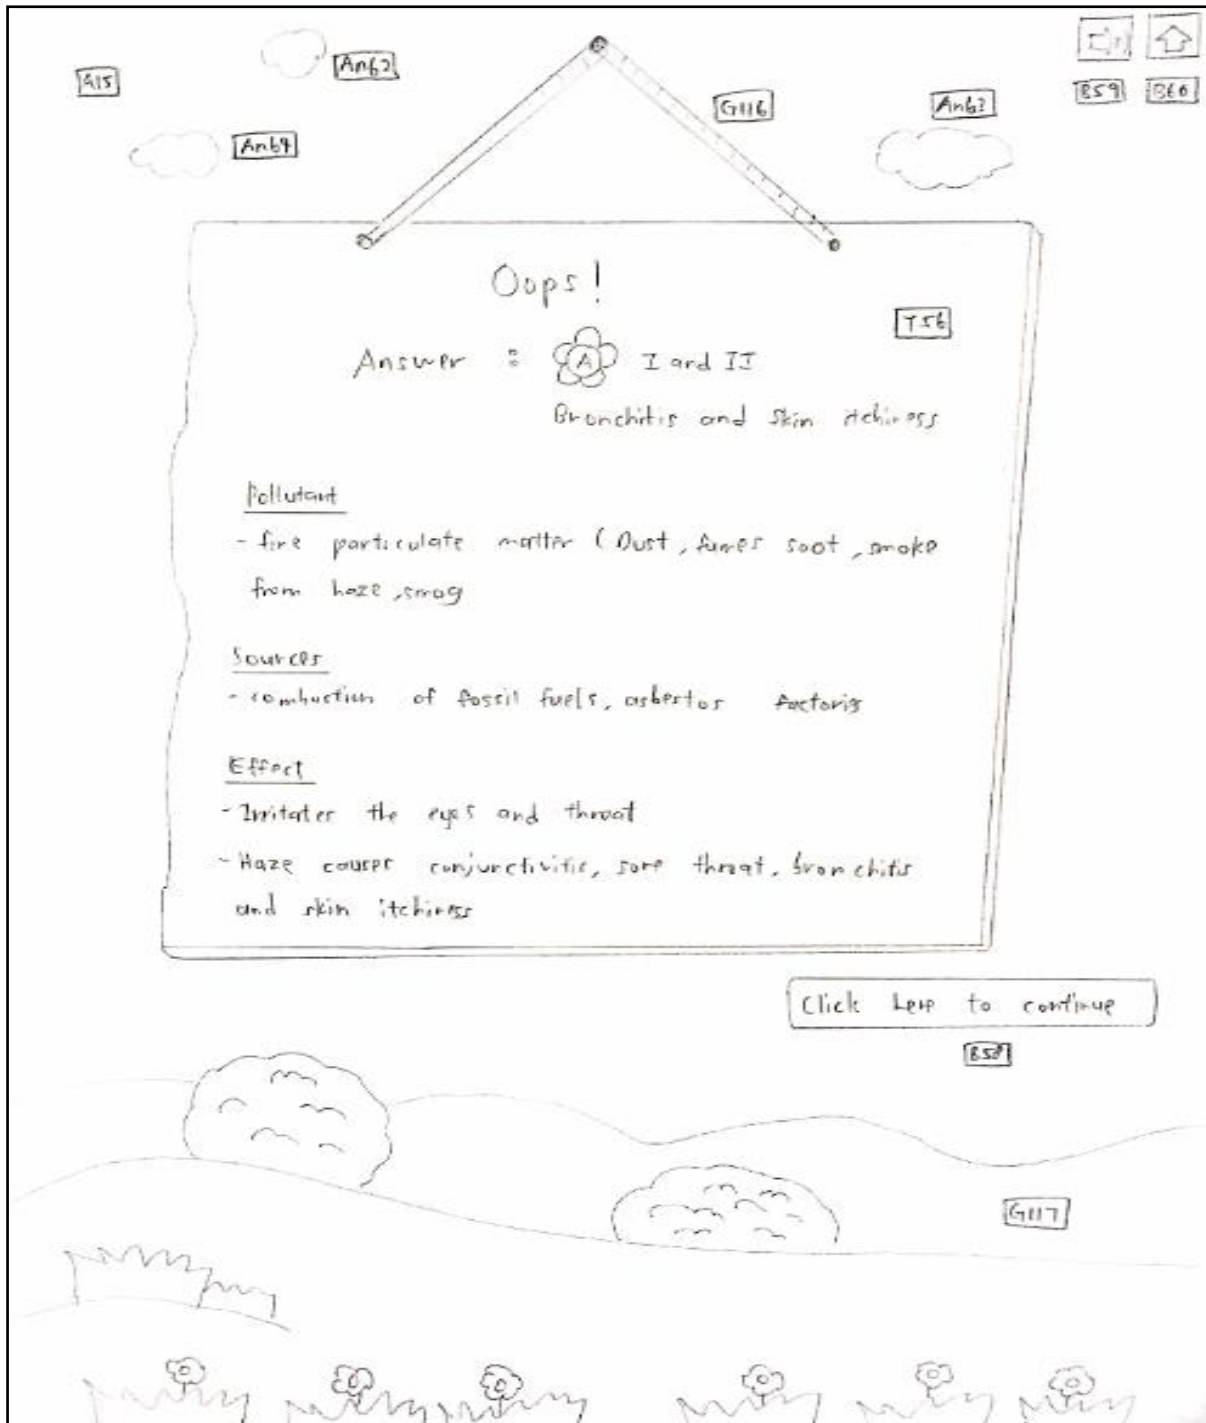 An62
A15
G116
An63
B59 B60
An64
Oops!
T56
Answer : A I and II
Bronchitis and skin itchiness
Pollutant
- fine particulate matter (Dust, fumes soot, smoke
from haze, smog
Sources
- combustion of fossil fuels, asbestos factoris
Effect
- Irritates the eyes and throat
- Haze causes conjunctivitis, sore throat, bronchitis
and skin itchiness
Click here to continue
B58
G117